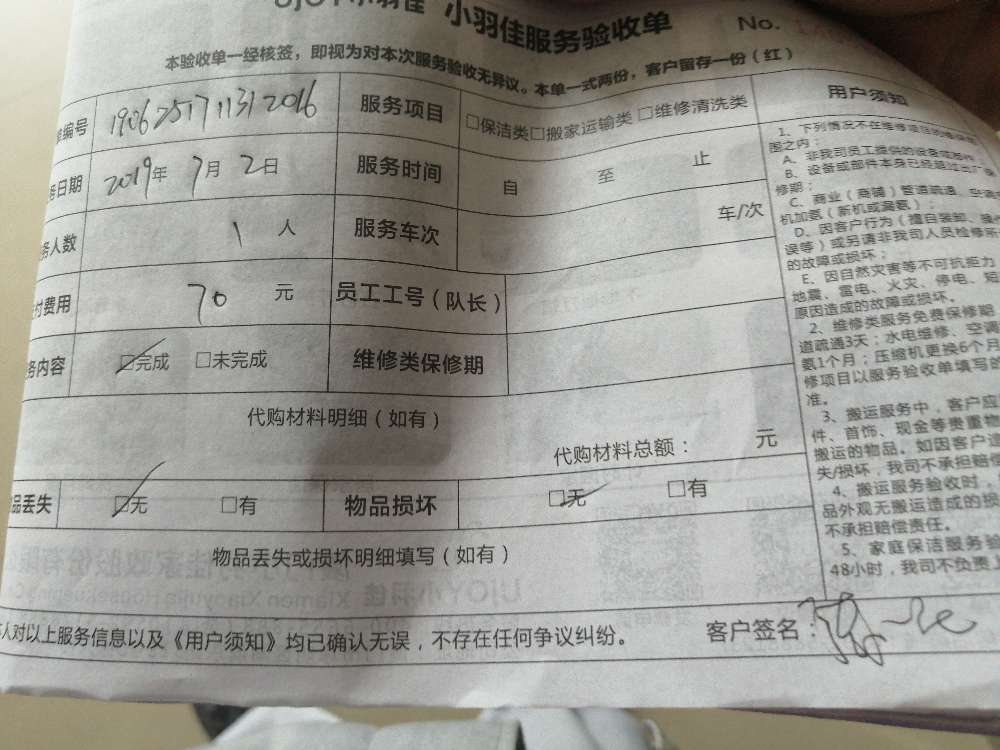 UJOY小羽佳 小羽佳服务验收单 No.
本验收单一经核签，即视为对本次服务验收无异议。本单一式两份，客户留存一份（红）
单编号 1906251711312016 服务项目 □保洁类□搬家运输类 □维修清洗类
务日期 2019年 7月 2日 服务时间 自 至 止
务人数 1 人 服务车次 车/次
付费用 70 元 员工工号（队长）
务内容 ☑完成 □未完成 维修类保修期
代购材料明细（如有）
代购材料总额： 元
品丢失 ☑无 □有 物品损坏 ☑无 □有
物品丢失或损坏明细填写（如有）
本人对以上服务信息以及《用户须知》均已确认无误，不存在任何争议纠纷。 客户签名：
用户须知
1、下列情况不在维修项目的保修范
围之内：
A、非我司员工提供的设备或部件
B、设备或部件本身已经超过出厂保
修期；
C、商业（商铺）管道疏通、空调
机加氨（新机或漏氨）；
D、因客户行为（擅自装卸、操作
误等）或另请非我司人员检修所
的故障或损坏；
E、因自然灾害等不可抗拒力
地震、雷电、火灾、停电、短
原因造成的故障或损坏。
2、维修类服务免费保修期
道疏通3天；水电维修、空调
氨1个月；压缩机更换6个月
修项目以服务验收单填写的
准。
3、搬运服务中，客户应
件、首饰、现金等贵重物
搬运的物品。如因客户造
失/损坏，我司不承担赔偿
4、搬运服务验收时，
品外观无搬运造成的损
不承担赔偿责任。
5、家庭保洁服务验
48小时，我司不负责上